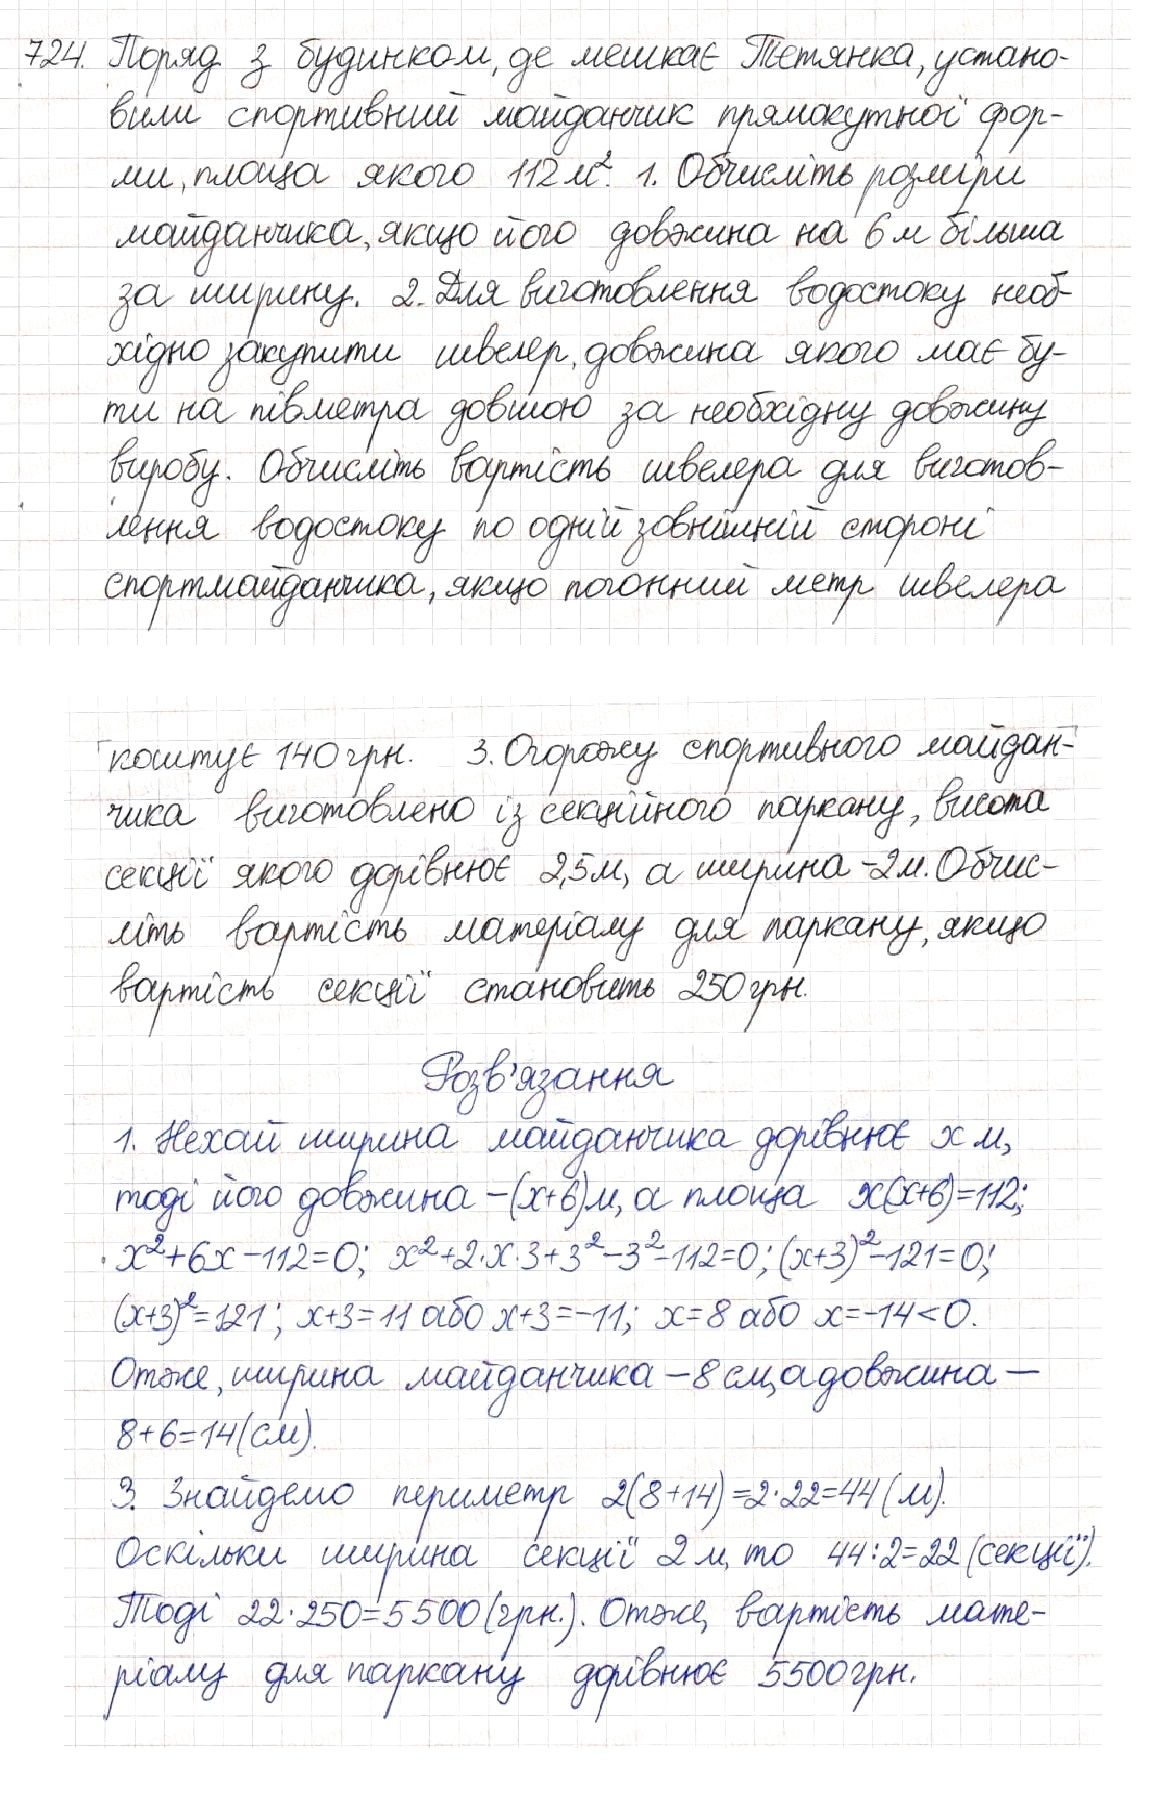 724. Поряд з будинком, де мешкає Тетянка, устано-
вили спортивний майданчик прямокутної фор-
ми, площа якого 112 м². 1. Обчисліть розміри
майданчика, якщо його довжина на 6 м більша
за ширину. 2. Для виготовлення водостоку необ-
хідно закупити швелер, довжина якого має бу-
ти на півметра довшою за необхідну довжину
виробу. Обчисліть вартість швелера для виготов-
лення водостоку по одній зовнішній стороні
спортмайданчика, якщо погонний метр швелера
коштує 140 грн. 3. Огорожу спортивного майдан-
чика виготовлено із секційного паркану, висота
секції якого дорівнює 2,5 м, а ширина – 2 м. Обчис-
літь вартість матеріалу для паркану, якщо
вартість секції становить 250 грн.
Розв'язання
1. Нехай ширина майданчика дорівнює x м,
тоді його довжина – (x+6) м, а площа x(x+6)=112;
x²+6x–112=0; x²+2·x·3+3²–3²–112=0; (x+3)²–121=0;
(x+3)²=121; x+3=11 або x+3=–11; x=8 або x=–14<0.
Отже, ширина майданчика – 8 см, а довжина –
8+6=14(см).
3. Знайдемо периметр 2(8+14)=2·22=44(м).
Оскільки ширина секції 2 м, то 44:2=22 (секції).
Тоді 22·250=5500(грн.). Отже, вартість мате-
ріалу для паркану дорівнює 5500 грн.